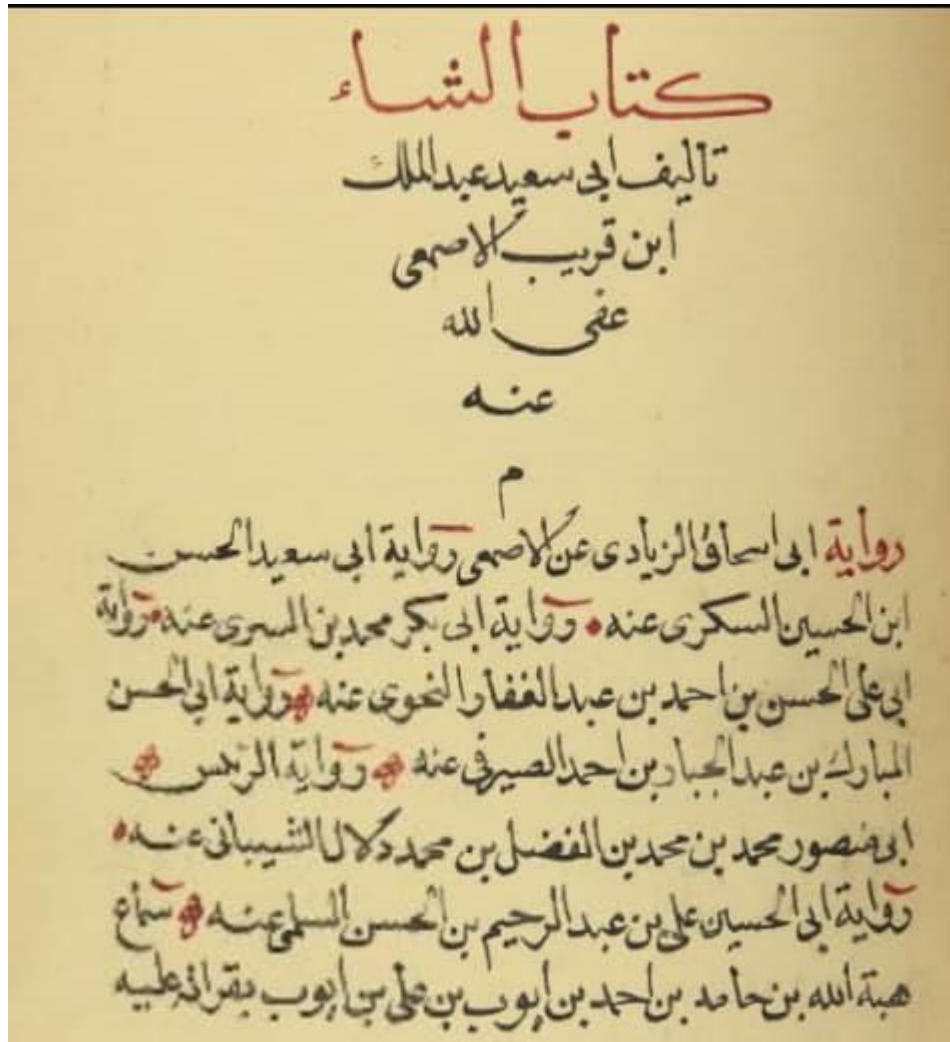 كتاب الشاء
تأليف ابى سعيد عبد الملك
ابن قريب الاصمعى
عفى الله
عنه
م
رواية ابى اسحاق الزيادى عن الاصمعى رواية ابى سعيد الحسن
ابن الحسين السكرى عنه ورواية ابى بكر محمد بن السرى عنه ورواية
ابى على الحسن بن احمد بن عبد الغفار النحوى عنه ورواية ابى الحسن
المبارك بن عبد الجبار بن احمد الصيرفى عنه ورواية الرئيس
ابى منصور محمد بن محمد بن الفضل بن محمد دلال الشيبانى عنه
رواية ابى الحسين على بن عبد الرحيم بن الحسن السلمى عنه سماع
هبة الله بن حامد بن احمد بن ايوب بن على بن ايوب بقرائه عليه